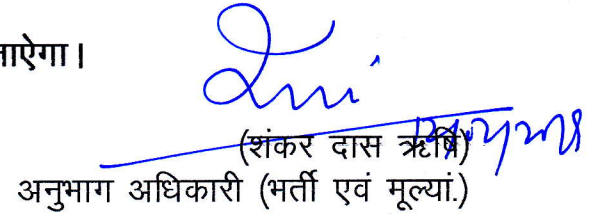 ाऐगा।
(शंकर दास ऋषि)
अनुभाग अधिकारी (भर्ती एवं मूल्यां.)